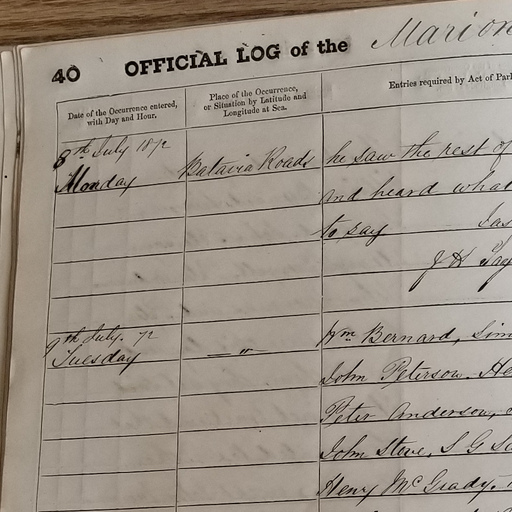 40 OFFICIAL LOG of the Marion
Date of the Occurrence entered, with Day and Hour.
Place of the Occurrence, or Situation by Latitude and Longitude at Sea.
Entries required by Act of Parl
8th July 1872
Monday
Batavia Roads
he saw the rest of
and heard what
to say Jas
J H
9th July. 72
Tuesday
— " —
Wm Bernard, Sim
John Peterson. He
Peter Anderson,
John Stove, S G
Henry McGrady.